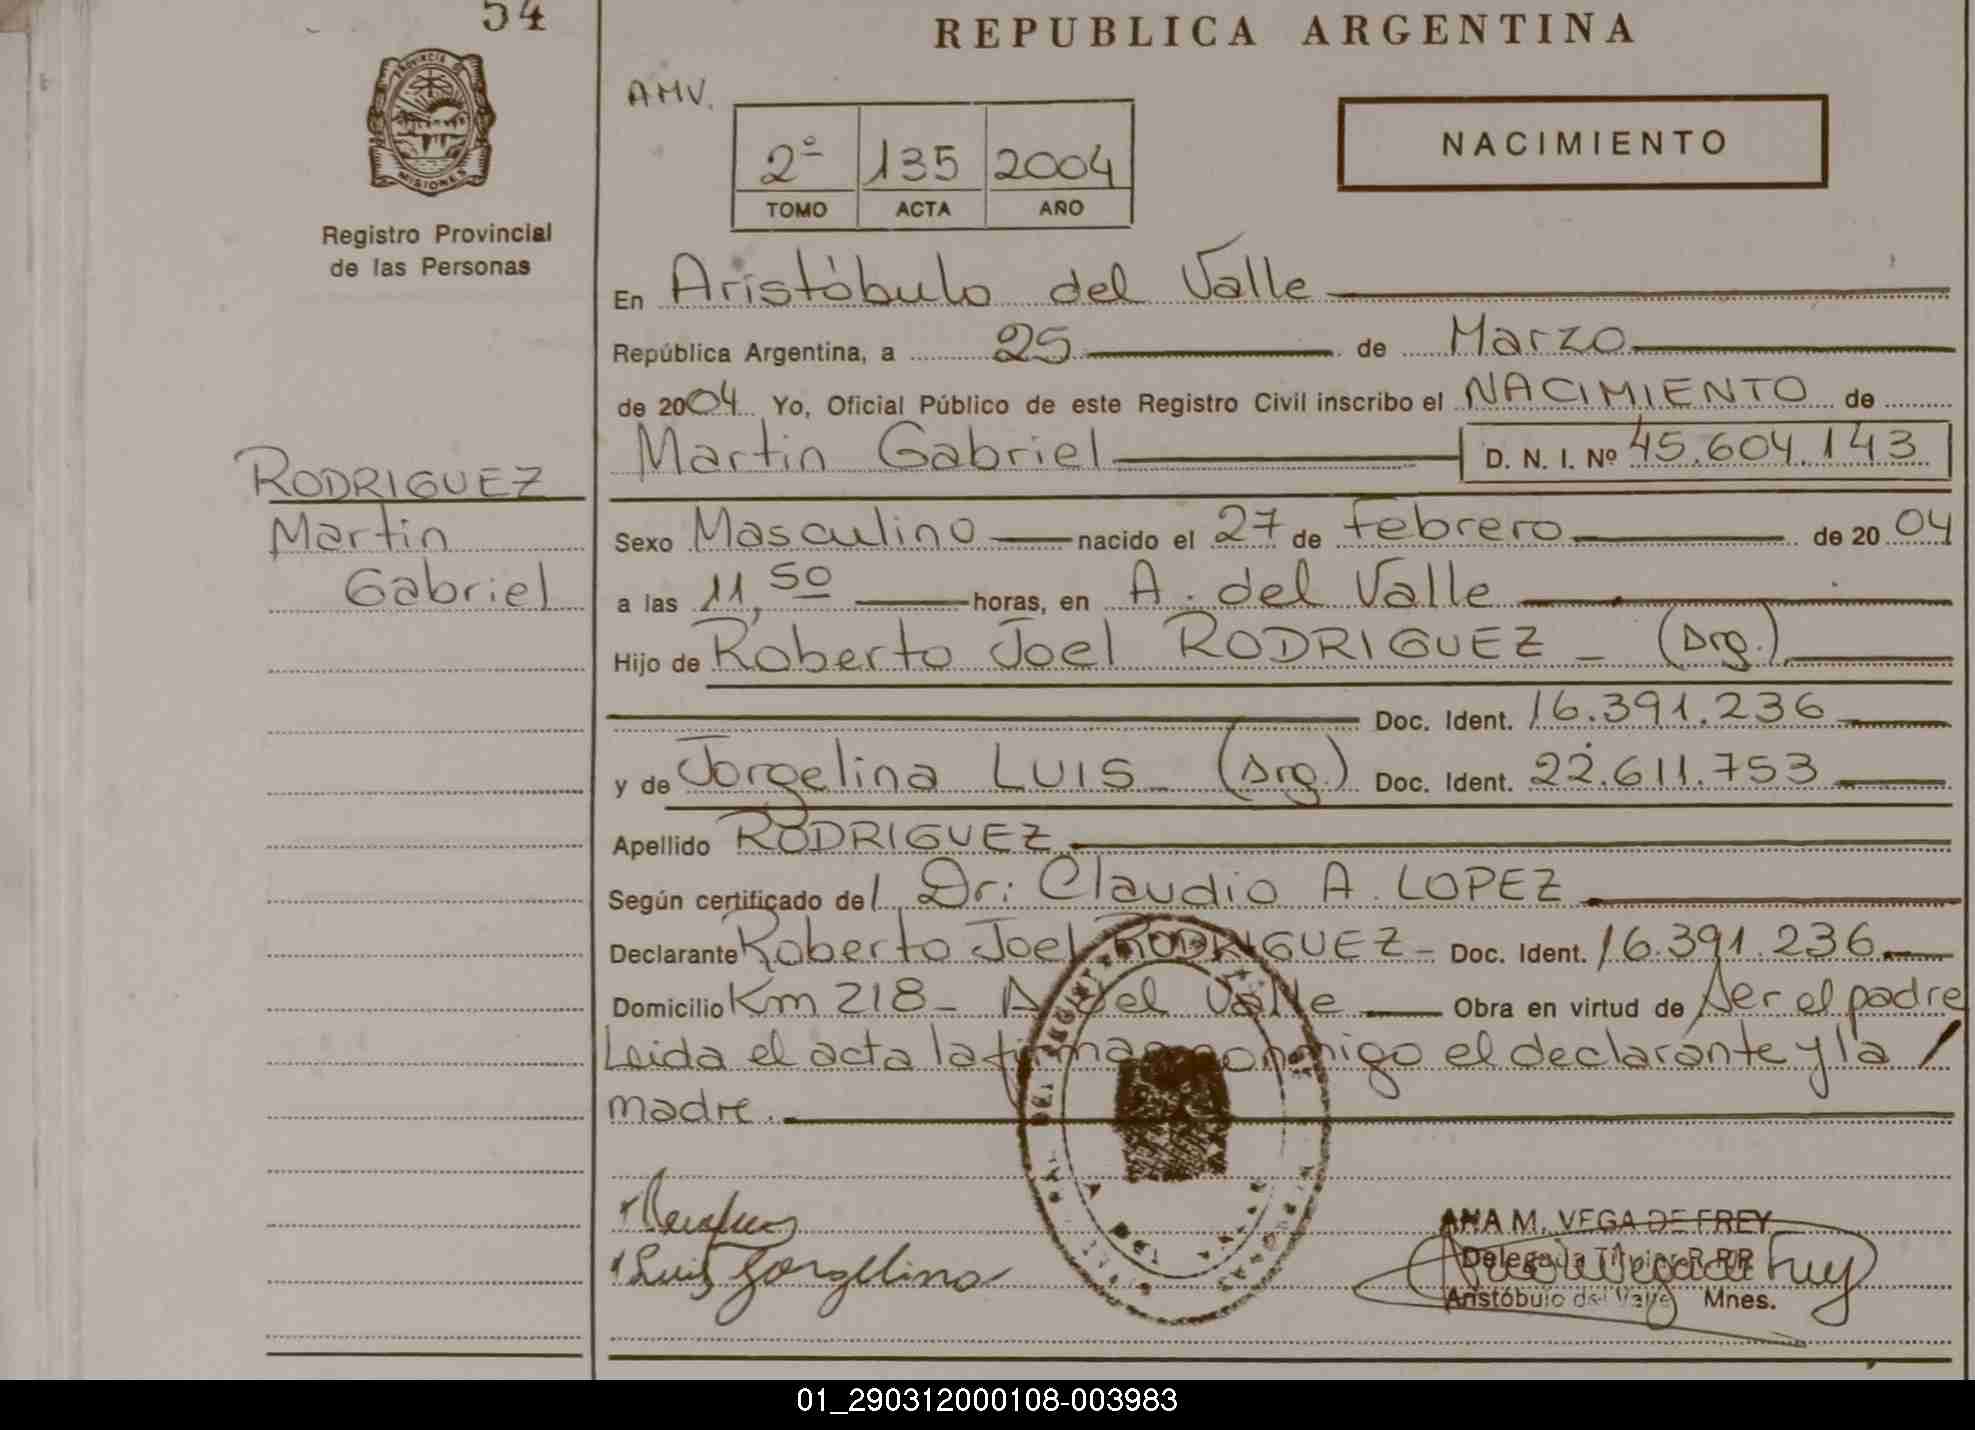 54
REPUBLICA ARGENTINA
PROVINCIA DE
MISIONES
AMV.
NACIMIENTO
2º 135 2004
TOMO ACTA AÑO
Registro Provincial
de las Personas
En Aristóbulo del Valle
República Argentina, a 25 de Marzo
de 2004 Yo, Oficial Público de este Registro Civil inscribo el NACIMIENTO de
Martin Gabriel D. N. I. Nº 45.604.143
RODRIGUEZ
Martin
Gabriel
Sexo Masculino nacido el 27 de Febrero de 2004
a las 11,50 horas, en A. del Valle
Hijo de Roberto Joel RODRIGUEZ - (Arg.)
Doc. Ident. 16.391.236
y de Jorgelina LUIS - (Arg.) Doc. Ident. 22.611.753
Apellido RODRIGUEZ
Según certificado del Dr: Claudio A. LOPEZ
Declarante Roberto Joel RODRIGUEZ - Doc. Ident. 16.391.236
Domicilio Km 218 - A del Valle Obra en virtud de ser el padre
Leida el acta la firman conmigo el declarante y la /
madre.
Luis Jorgelina
ANA M. VEGA DE FREY
Delegada Titular R.P.P.
Aristóbulo del Valle Mnes.
01_290312000108-003983